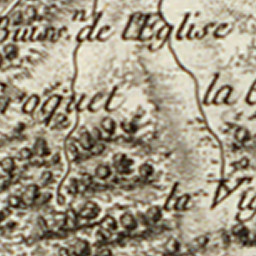 Buiss.n de l'Eglise
Croquet
la
la Vig